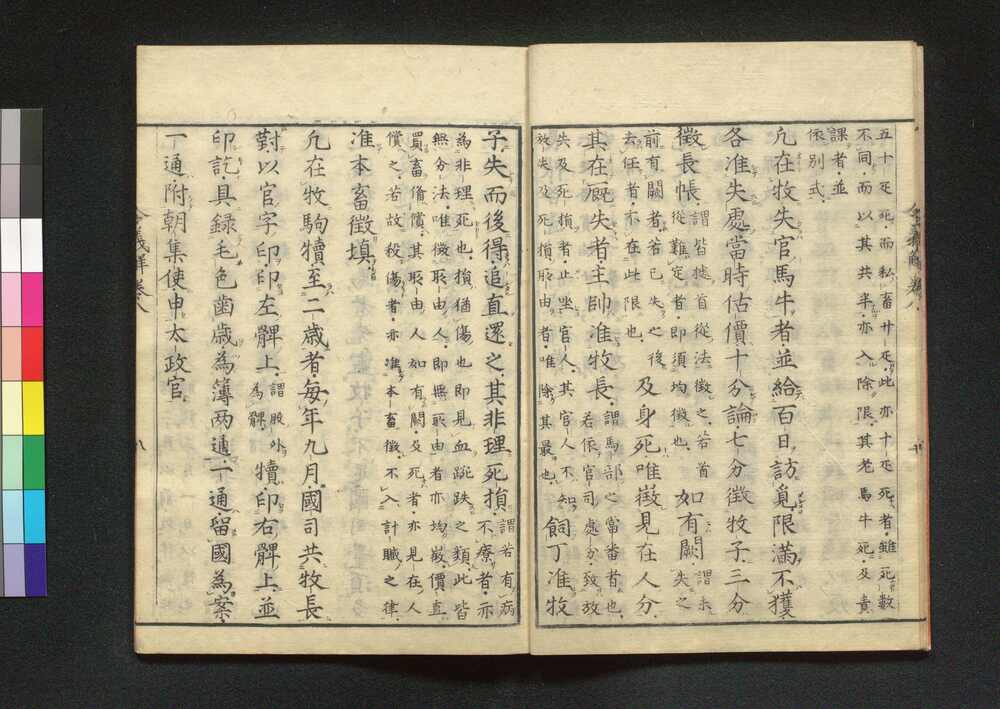 五十疋死而私畜廿疋此亦十疋死者雖死數
不同而以其共半亦入除限其老馬牛死及責
課者並
依別式
凢在牧失官馬牛者並給百日訪覓限滿不獲
各准失處當時估價十分論七分徵牧子三分
徵長帳謂皆據首從法徵之若首
從難定者即須均徵也如有闕謂未失之
前有闕者若已失之後
去任者不在此限也及身死唯徵見在人分
其在厩失者主帥准牧長謂馬部之當番者也
若依官司處分致放
失及死損者止坐官人其官人不知
放失及死損所由者唯除其最也飼丁准牧
子失而後得追直還之其非理死損謂若有病
不療者亦
為非理死也損猶傷也即見血踠跌之類此皆
無分法唯徵所由人即無所由者亦均徵價直
買畜備償其所由人如有闕及死者亦見在人
償之若故殺傷者亦准本畜徵不入計贓之律
准本畜徵填
凢在牧駒犢至二歲者每年九月國司共牧長
對以官字印印左髀上謂股外
為髀犢印右髀上並
印訖具録毛色齒歲為簿两通一通留國為案
一通附朝集使申太政官
令義解卷八
八